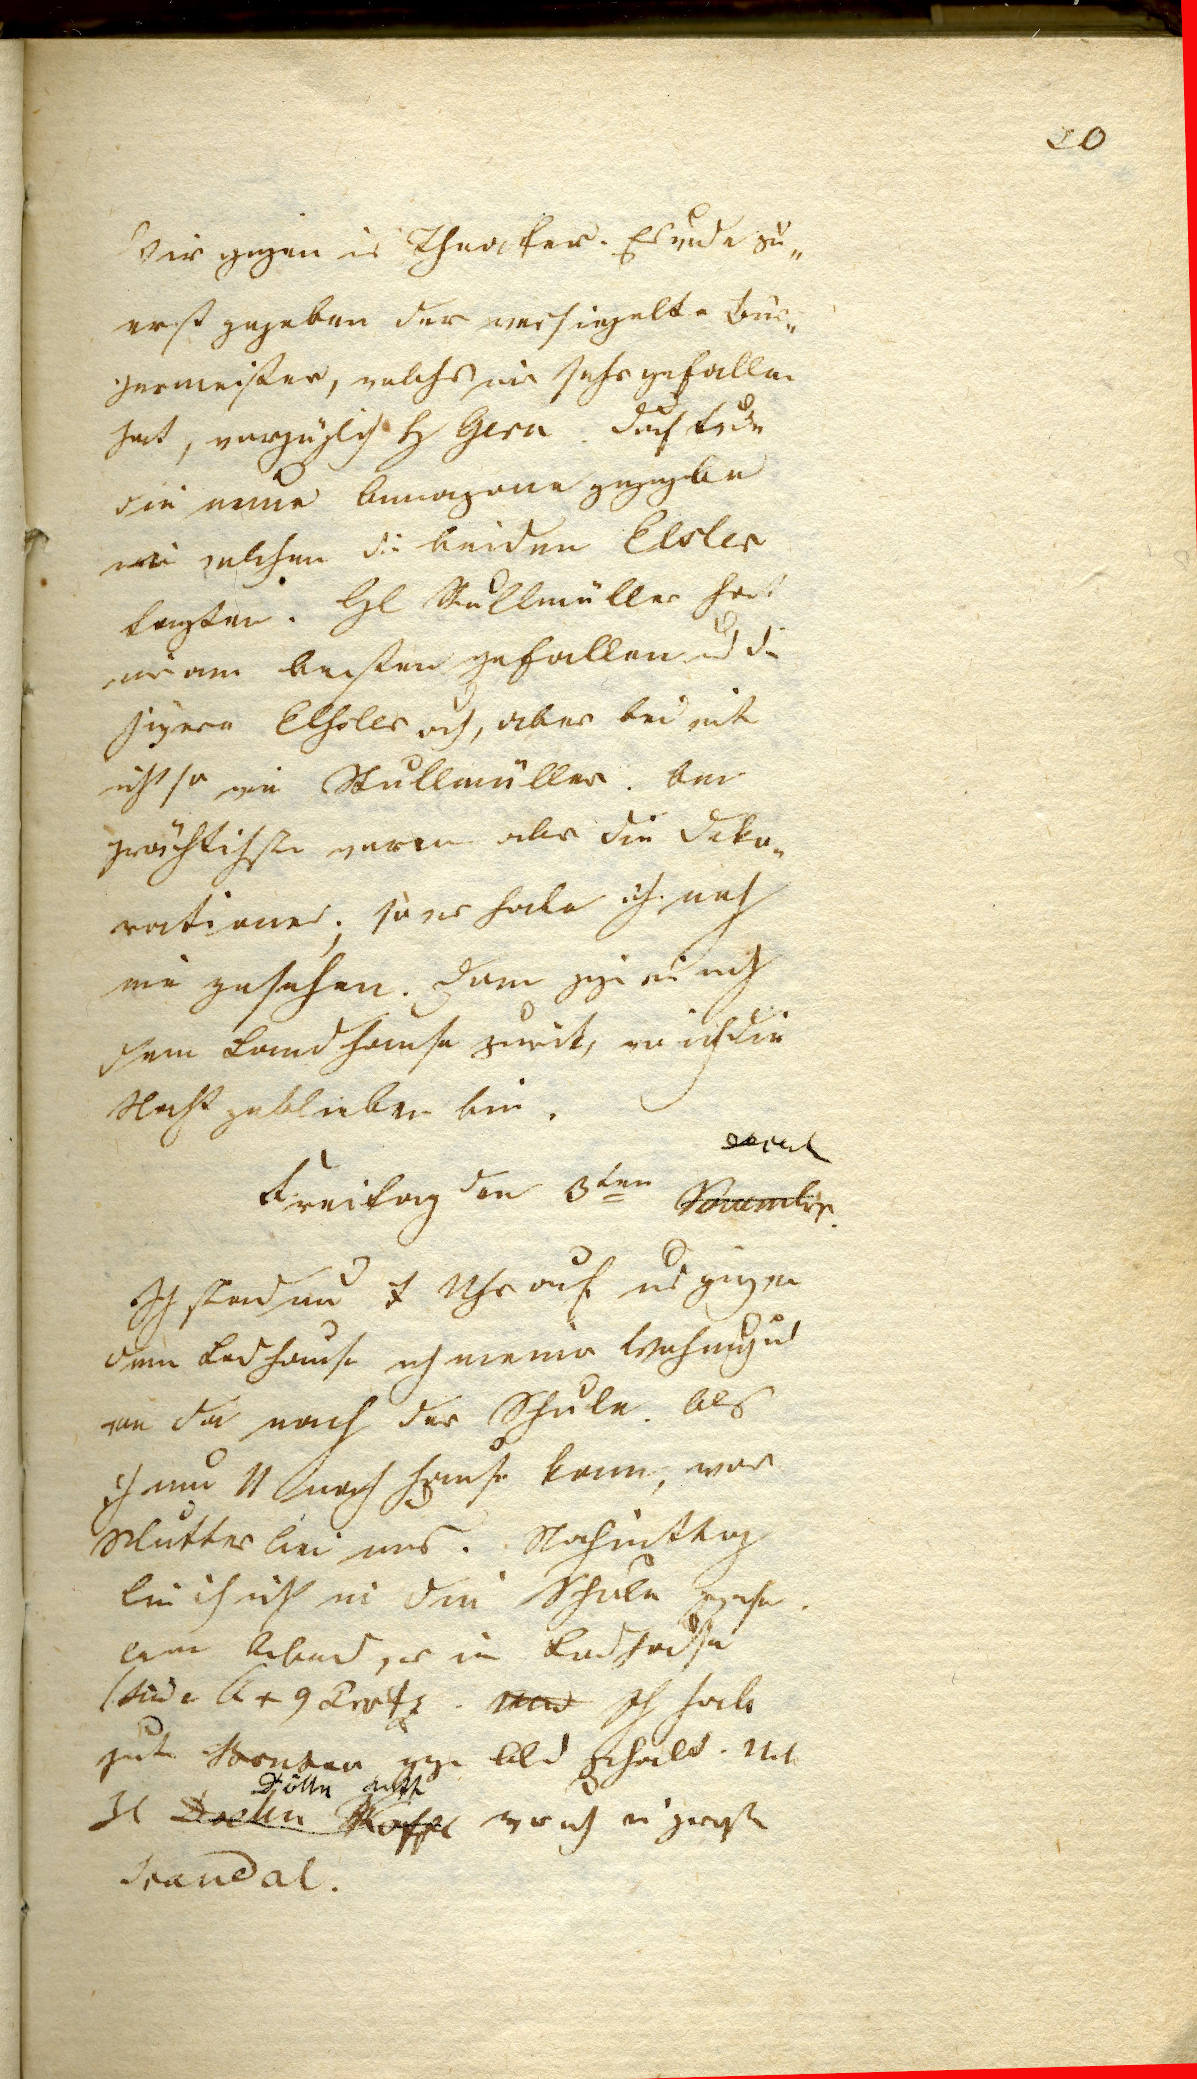 20
Wir gingen in Theater. Es wurde zu„
erst gegeben der versiegelte Bür„
germeister, welchs mir sehr gefallen
hat, vorzüglich H Gern. Drauf wurde
die neue Amazone gegeben
wo welchen die beiden Elsler
tanzten. Hl Stullmüller hat
mir am besten gefallen und die
jüngere Elsler auch, aber bei weit
nicht so wie Stullmüller. Am
prächtigste waren aber die Deko„
rationes; so was habe ich noch
nie gesehen. Dann gingen wir nach
dem Landhause zurück, wo ich die
Nacht geblieben bin.
Freitag den 3ten November.
Ich stand um 7 Uhr auf und ging von
dem Landhause nach meiner Wohnung und
von da nach der Schule. Als
ich um 11 nach Hause kam, war
Mutter bei uns. Nachmittag
bin ich nicht in die Schule gewesen.
am Abend, war im Landhause
9 und Ich habe
gute
Dölln
Scandal.